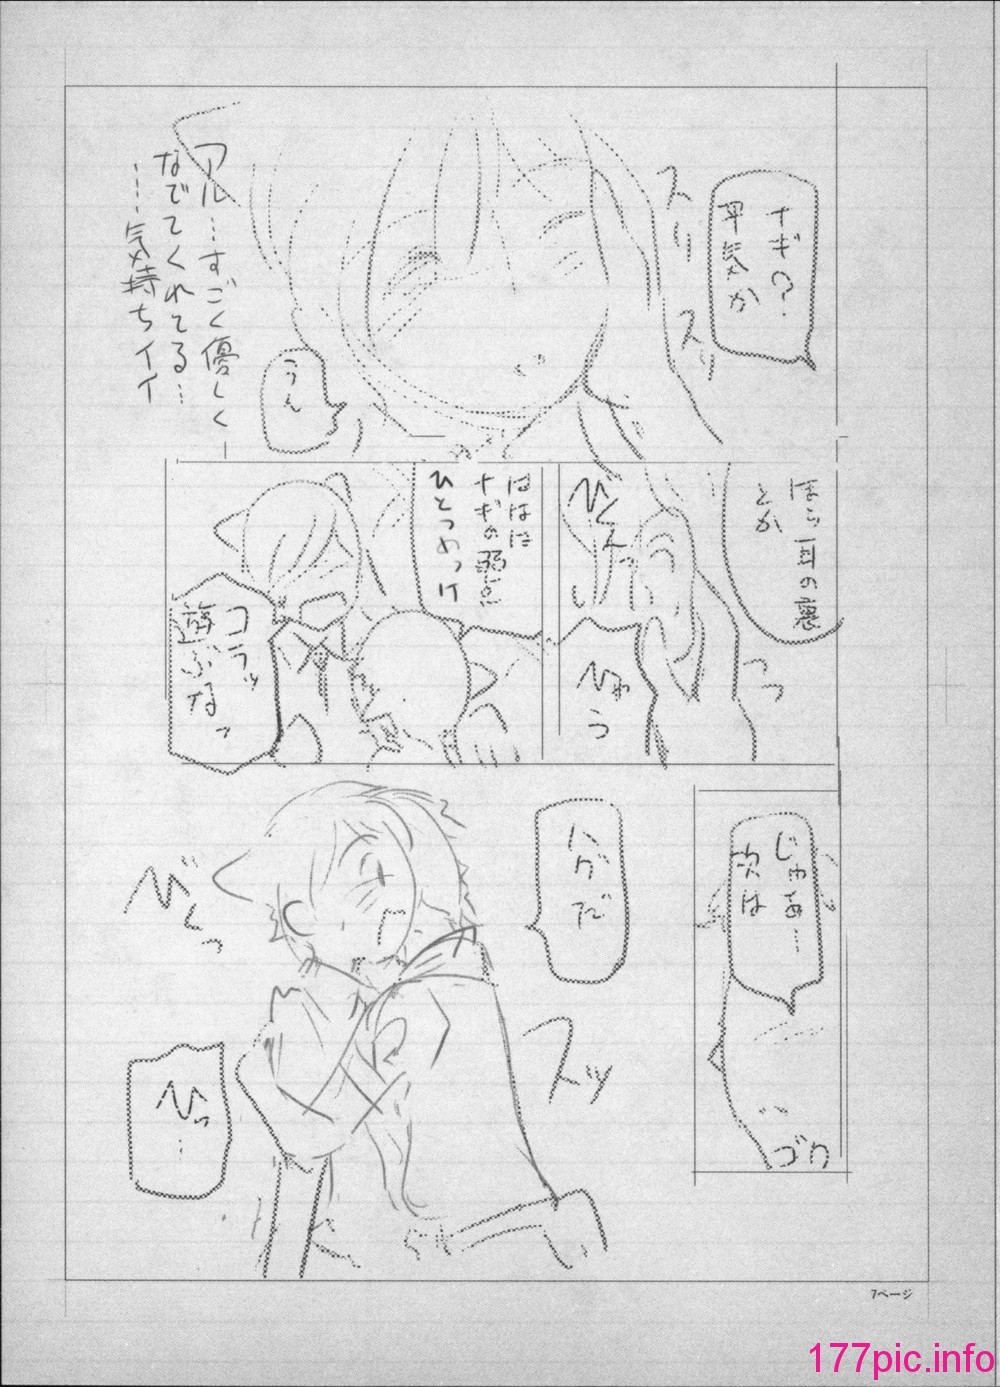 ナギ?
平気か
スリ
スリ
うん
アル…すごく優しく
なでてくれてる…
……気持ちイイ
ほら耳の裏
とか
びくんっ
ひゃう
ははは
ナギの弱点
ひとつめっけ
コラッ
遊ぶなっ
じゃあ…
次は
ゴク
ハグだ
スッ
びくっ
ひっ…
7ページ
177pic.info